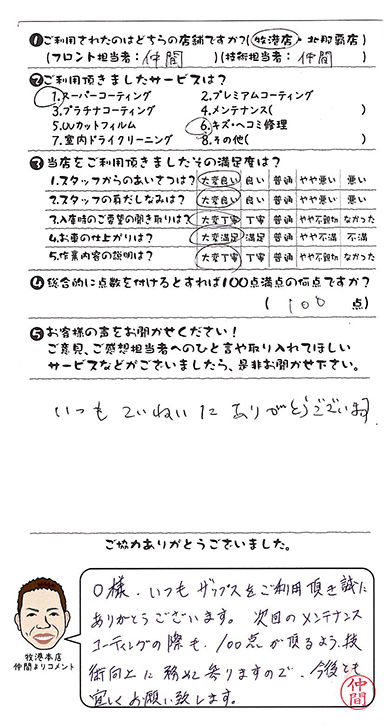 ❶ご利用されたのはどちらの店舗ですか?(牧港店・北那覇店)
(フロント担当者: 仲間 )(技術担当者: 仲間 )
❷ご利用頂きましたサービスは?
1.スーパーコーティング 2.プレミアムコーティング
3.プラチナコーティング 4.メンテナンス( )
5.UVカットフィルム 6.キズ・ヘコミ修理
7.室内ドライクリーニング 8.その他( )
❸当店をご利用頂きましたその満足度は?
1.スタッフからのあいさつは? 大変良い 良い 普通 やや悪い 悪い
2.スタッフの身だしなみは? 大変良い 良い 普通 やや悪い 悪い
3.入庫時のご要望の聞き取りは? 大変丁寧 丁寧 普通 やや不親切 なかった
4.お車の仕上がりは? 大変満足 満足 普通 やや不満 不満
5.作業内容の説明は? 大変丁寧 丁寧 普通 やや不親切 なかった
❹総合的に点数を付けるとすれば100点満点の何点ですか?
( 100 点)
❺お客様の声をお聞かせください!
ご意見、ご感想担当者へのひと言や取り入れてほしい
サービスなどがございましたら、是非お聞かせ下さい。
いつもていねいにありがとうございます
ご協力ありがとうございました。
O様、いつもザップスをご利用頂き誠に
ありがとうございます。次回のメンテナンス
コーティングの際も、100点が頂るよう、技
術向上に務めて参りますので、今後とも
宜しくお願い致します。
仲間
牧港本店
仲間よりコメント